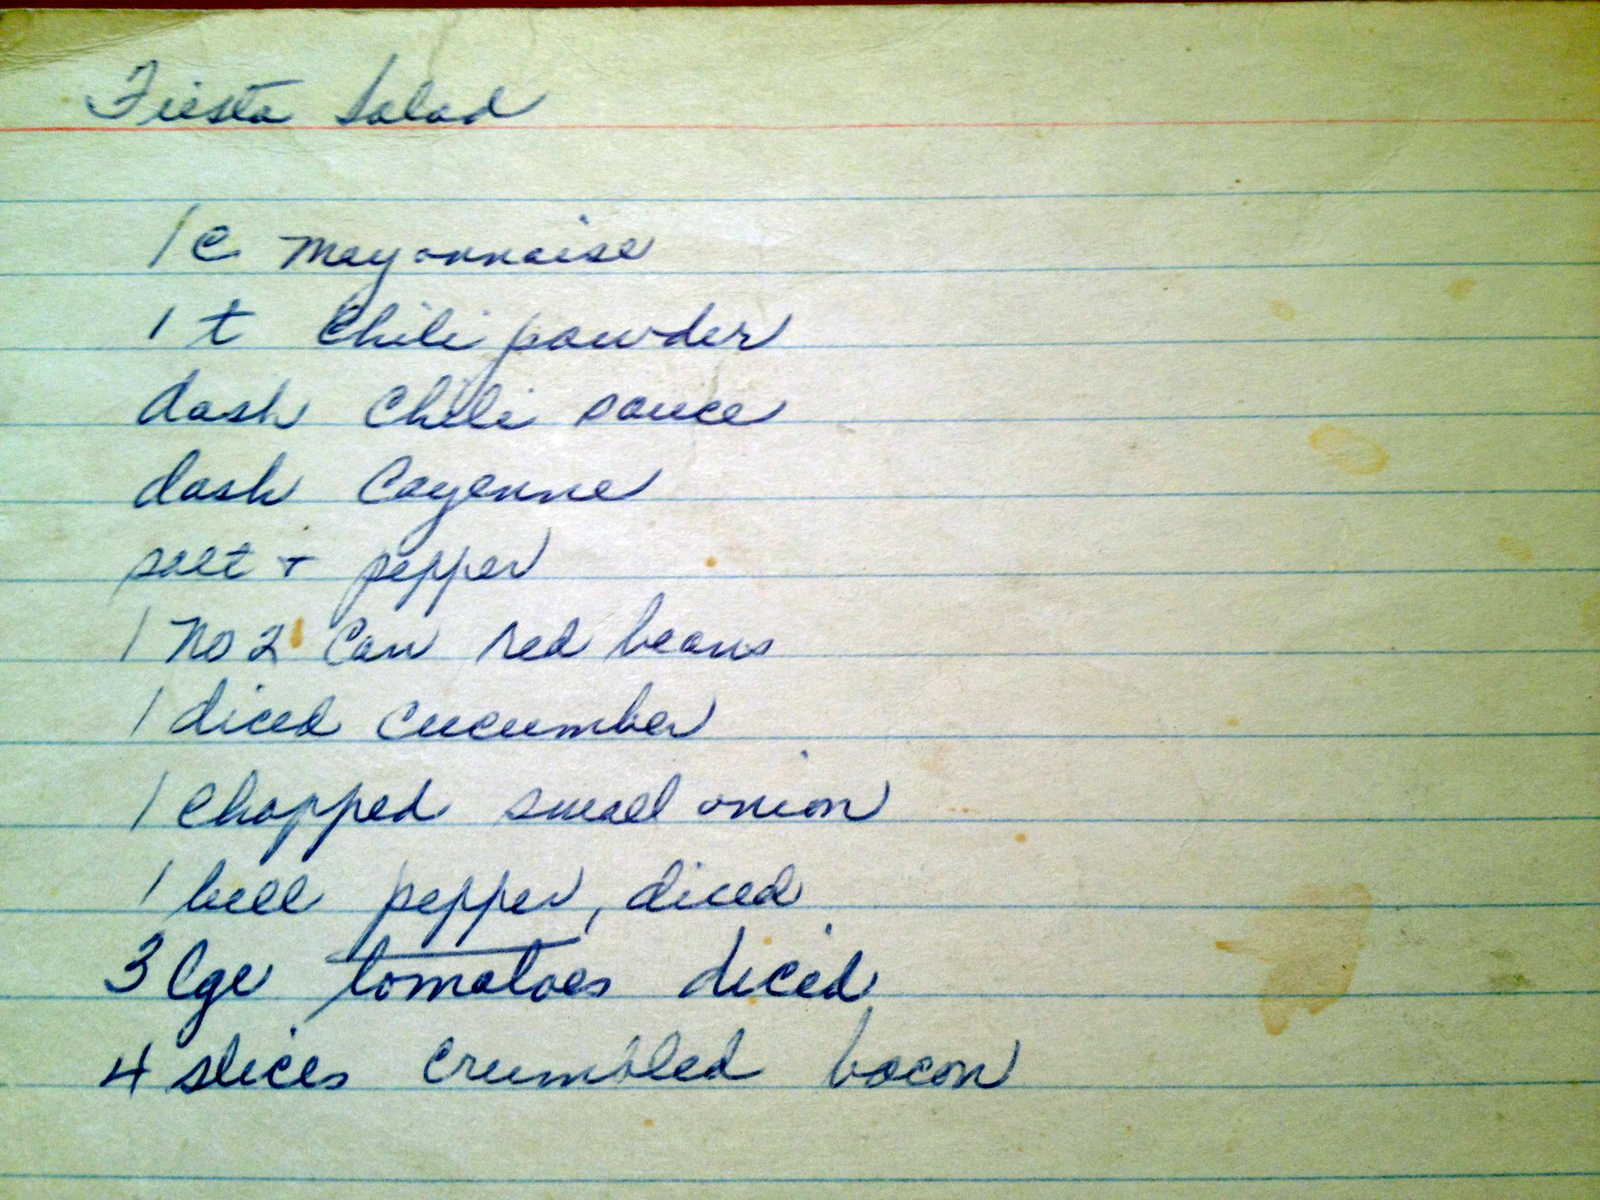 Fiesta Salad
1 C mayonnaise
1 t Chili powder
dash Chili sauce
dash Cayenne
salt + pepper
1 No 2 Can red beans
1 diced cucumber
1 Chopped small onion
1 bell pepper, diced
3 lge tomatoes diced
4 slices crumbled bacon